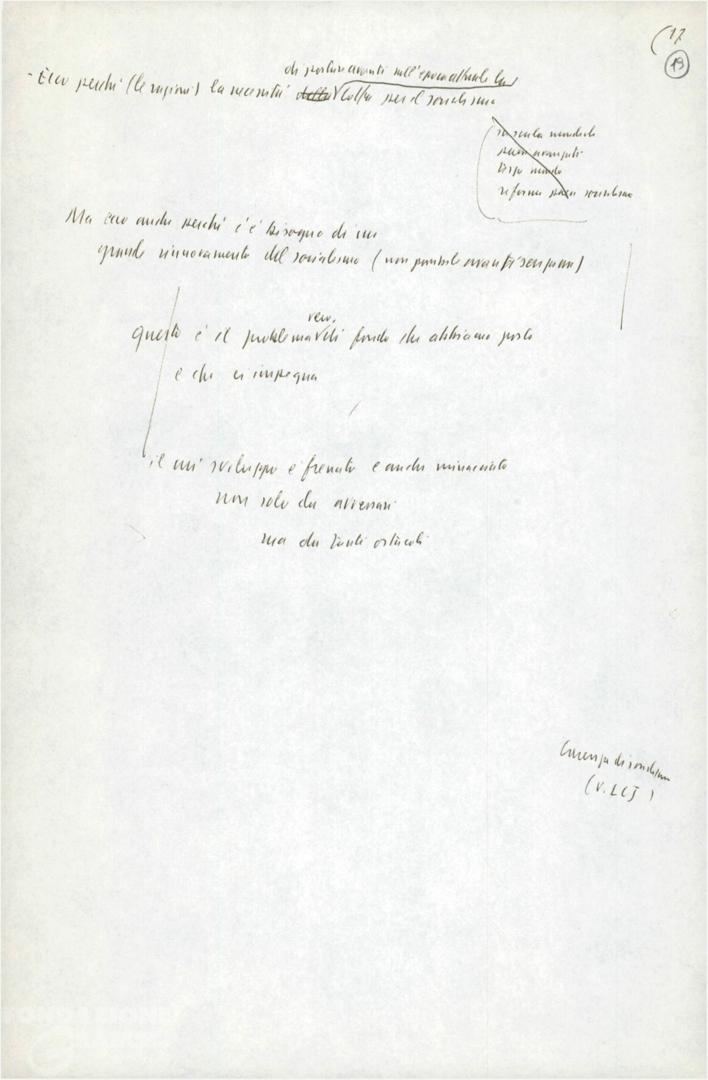 (17
19
di portare avanti nell'epoca attuale la
- Ecco perché (le ragioni) la necessità della lotta per il socialismo
su scala mondiale
paesi avanzati
terzo mondo
riforma paesi socialismo
Ma ecco anche perché c'è bisogno di un
grande rinnovamento del socialismo (non possibile avanti
vero,
questo è il problema di fondo che abbiamo posto
e che ci impegna
il cui sviluppo è frenato e anche minacciato
non solo da avversari
ma da tanti ostacoli
di socialismo
(V. LCJ)